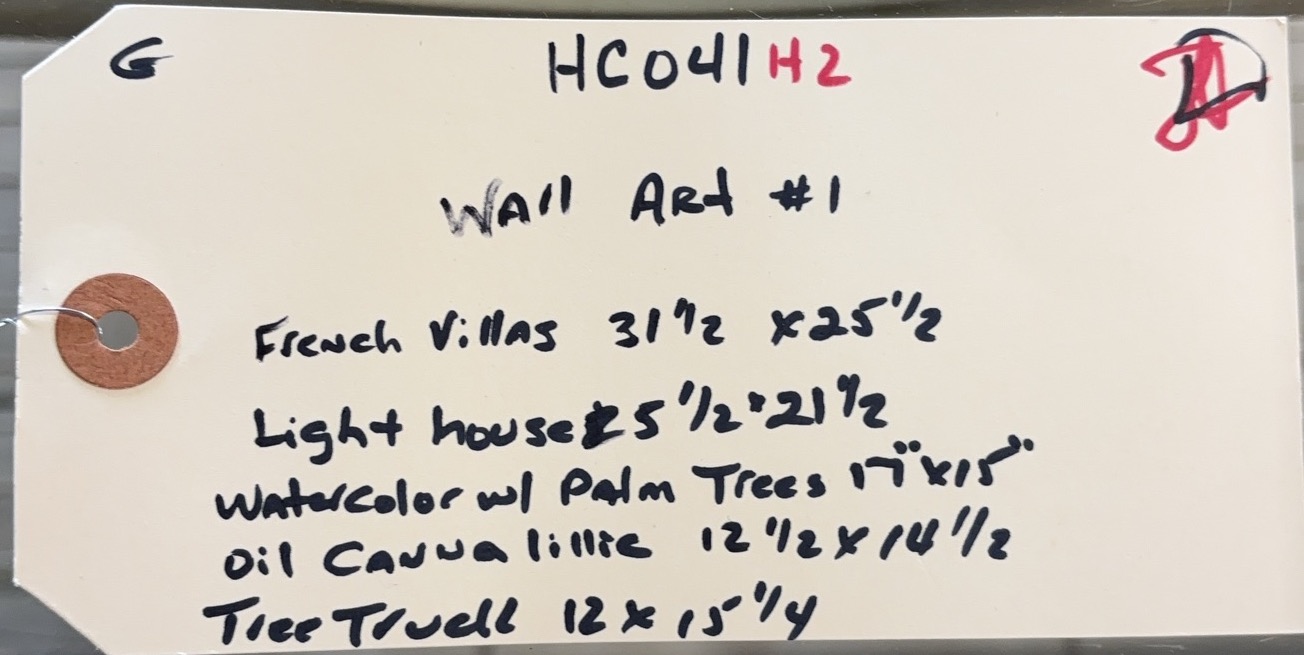 G HC041 H2 D
Wall Art #1
French Villas 31 1/2 x 25 1/2
Light house 25 1/2 x 21 1/2
Watercolor w/ Palm Trees 17" x 15"
Oil Canna lillie 12 1/2 x 14 1/2
Tree 12 x 15 1/4